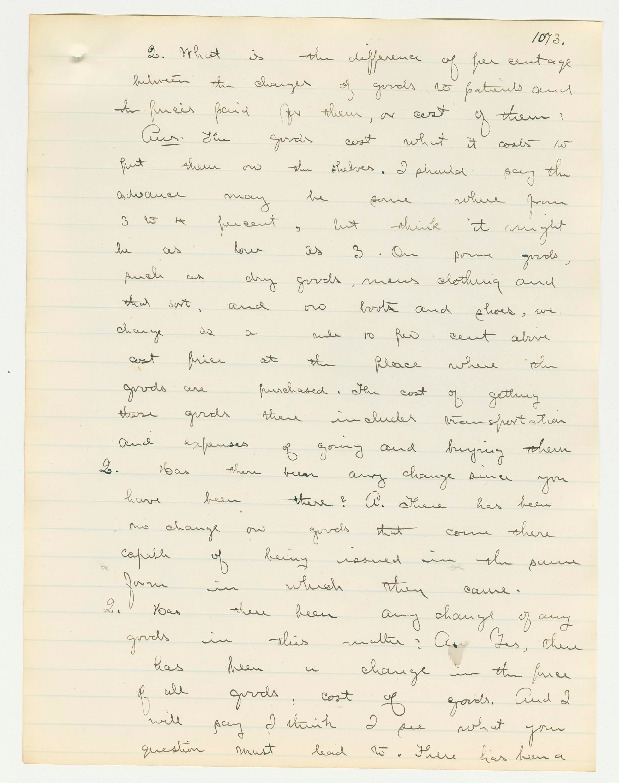 1073.
Q. What is the difference of per centage
between the charges of goods to patients and
the prices paid for them, or cost of them?
Ans. The goods cost what it costs to
put them on the shelves. I should say the
advance may be some where from
3 to 4 percent, but think it might
be as low as 3. On some goods,
such as dry goods, mens clothing and
that sort, and on boots and shoes, we
charge as a rule 10 per cent above
cost price at the place where the
goods are purchased. The cost of getting
these goods there includes transportation
and expenses of going and buying them
Q. Has there been any change since you
have been there? A. There has been
no change on goods that come there
capable of being issued in the same
form in which they came.
Q. Has there been any change of any
goods in this matter? A. Yes, there
has been a change in the price
of all goods, cost of goods. And I
will say I think I see what your
question must lead to. There has been a